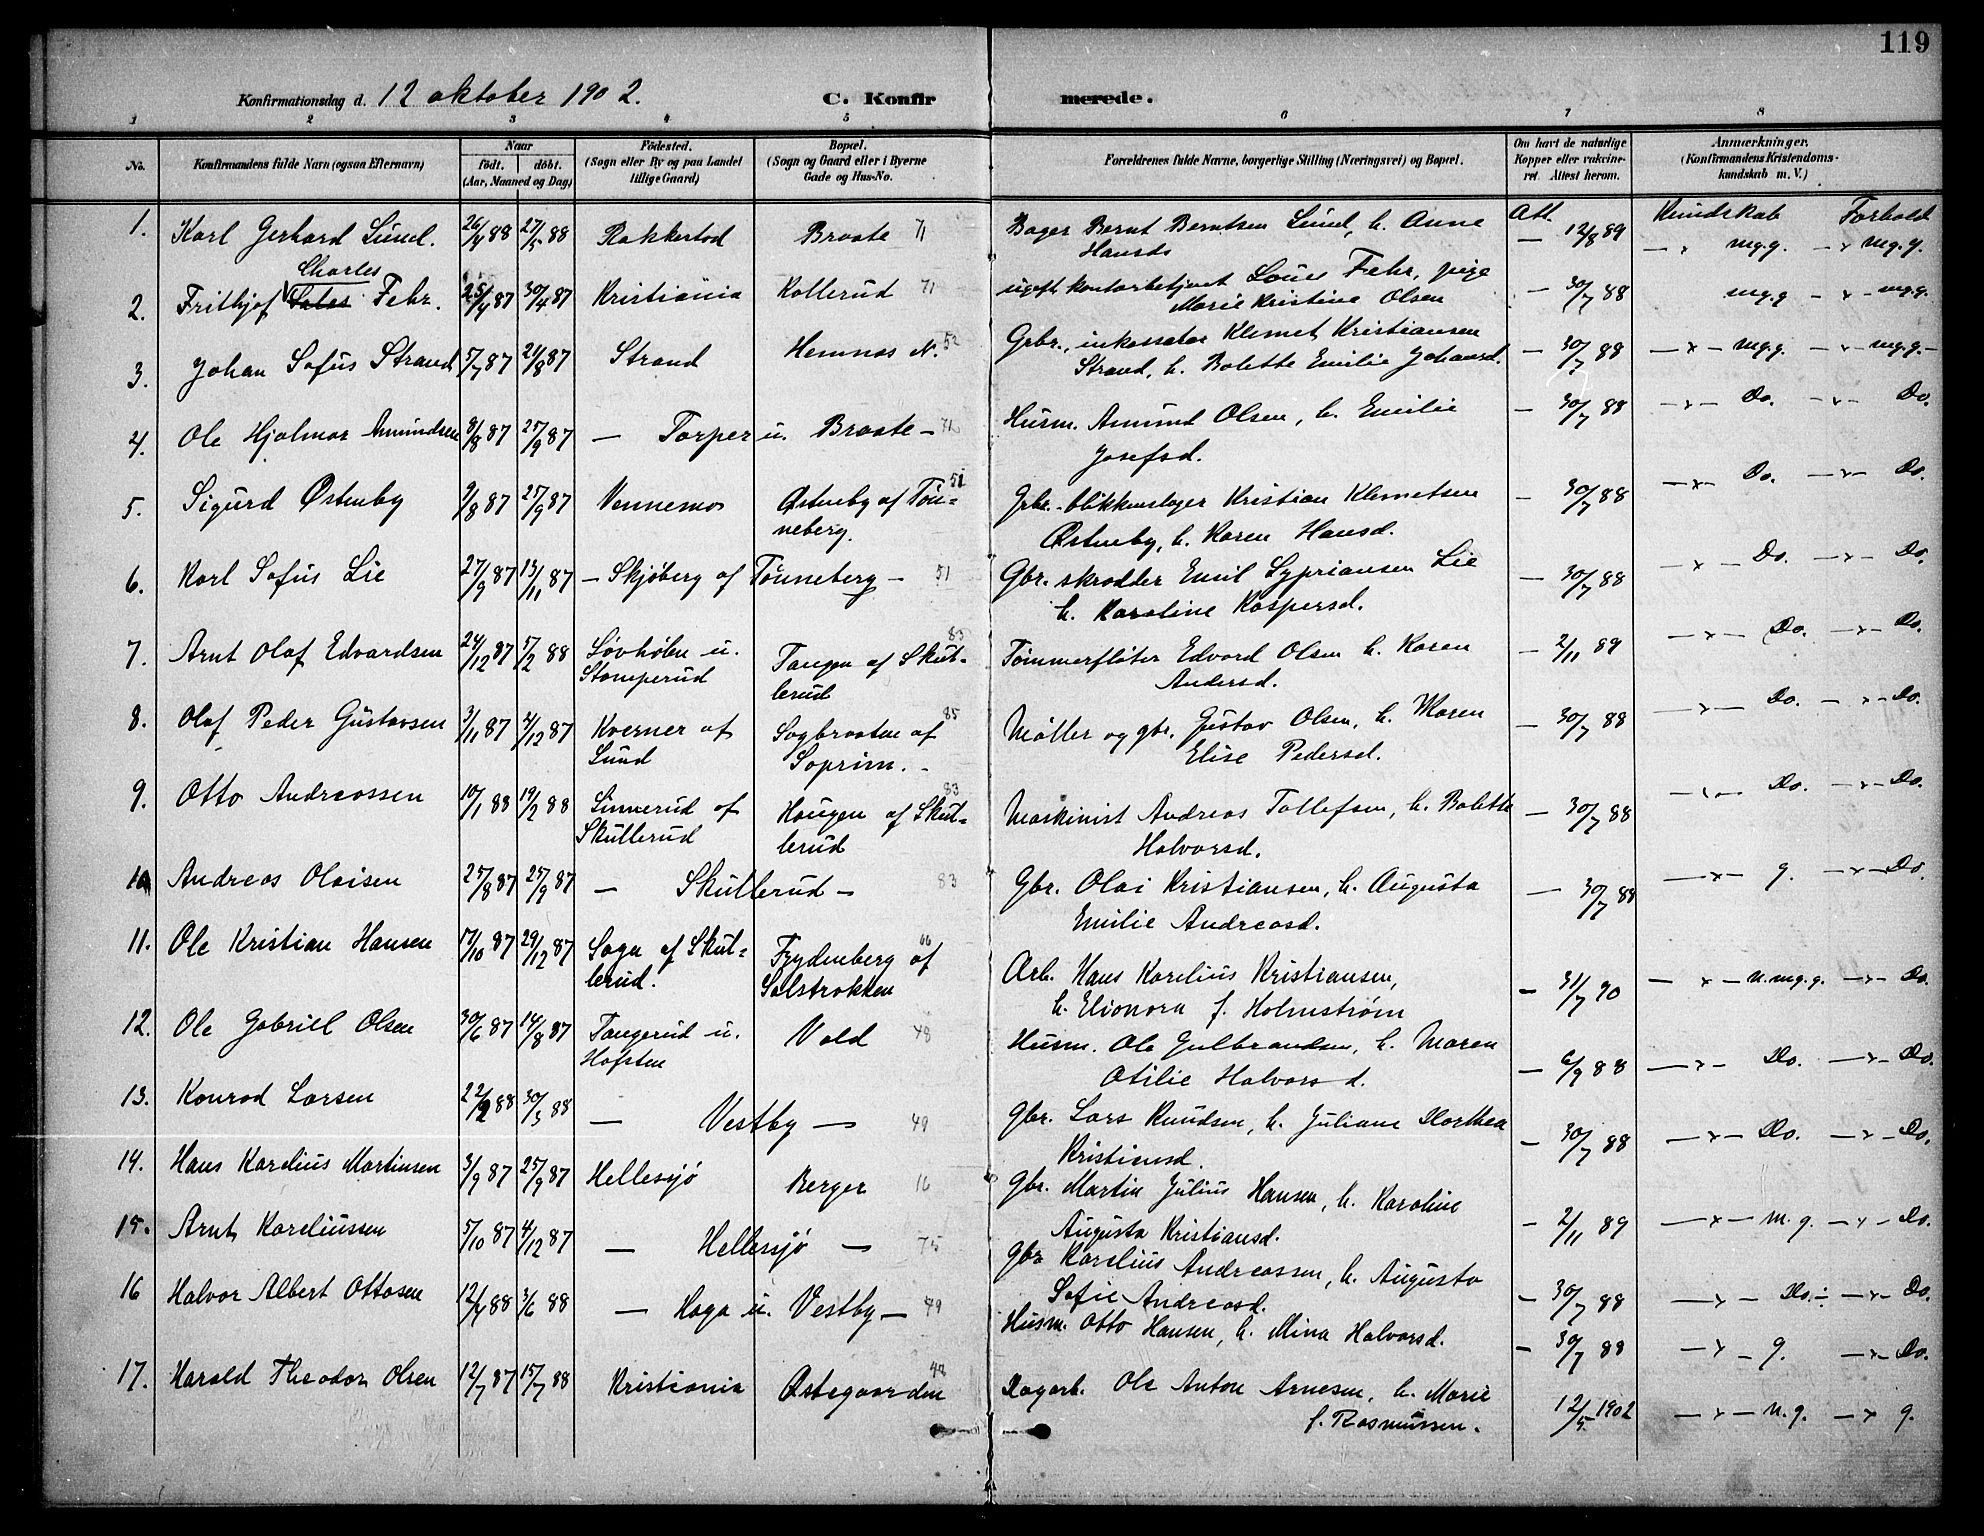 119
Konfirmationsdag d. 12 oktober 1902. C. Konfirmerede.
1 2 3 4 5 6 7 8
No. Konfirmandens fulde Navn (ogsaa Efternavn) Naar födt. döbt. (Aar, Maaned og Dag) Födested. (Sogn eller By og paa Landet tillige Gaard) Bopæl. (Sogn og Gaard eller i Byerne Gade og Hus-No. Forældrenes fulde Navne, borgerlige Stilling (Næringsvei) og Bopæl. Om havt de naturlige Kopper eller vakcineret. Attest herom. Anmærkninger. (Konfirmandens Kristendomskundskab m. V.)
Att. Kundskab Forhold
1. Karl Gerhard Lund. 26/4 88 27/5 88 Rakkestad Braate 71 Bager Bernt Berntsen Lund, h. Anne — 12/8 89 — " mg.g. — " mg.g.
Hansd.
Charles
2. Frithjof Fehr. 25/4 87 30/4 87 Kristiania Kollerud 71 ugift kontorbetjent Louis Fehr, pige — 30/7 88 mg.g — " — mg.g.
Marie Kristine Olsen
3. Johan Sofus Strand 5/7 87 21/8 87 Strand Hemnæs N. 52 Grbr., inkassator Klemet Kristiansen — 30/7 88 — " — mg.g. — " — mg.g. —
Strand, h. Bolette Emilie Johansd.
4. Ole Hjalmar Amundsen 8/8 87 25/9 87 — Torper u. Braate — 72 Husm. Amund Olsen, h. Emilie — 30/7 88 — " — Do. — " — Do.
Josefsd.
5. Sigurd Østenby 9/8 87 25/9 87 Vennemo Østenby af Tön= 51 Grbr. blikkenslager Kristian Klemetsen — 30/7 88 — " — Do. — " — Do.
neberg. Østenby, h. Karen Hansd.
6. Karl Sofus Lie 27/9 87 13/11 87 — Skjöberg af Tönneberg — 51 Gbr. skrædder Emil Sypriansen Lie — 30/7 88 — " — Do. — " — Do.
h. Karoline Kaspersd.
7. Arnt Olaf Edvardsen 24/12 87 5/2 88 Lövhölen u. Tangen af Skul= 83 Tömmerflöter Edvard Olsen h. Karen — 2/11 89 — " — Do. — " — Do.
Stomperud lerud Andersd.
8. Olaf Peder Gustavsen 3/11 87 4/12 87 Kverner af Sagbraaten af 85 Möller og gbr. Gustav Olsen, h. Maren — 30/7 88 — " — Do. — " — Do.
Lund Soprim. Elise Pedersd.
9. Otto Andreassen 10/1 88 19/2 88 Linnerud af Haugen af Skul= 83 Maskinist Andreas Tollefsen, h. Bolette — 30/7 88 — " — Do. — " — Do.
Skullerud lerud Halvorsd.
10 Andreas Olaisen 25/8 87 25/9 87 — Skullerud — 83 Gbr. Olai Kristiansen, h. Augusta — 30/7 88 — " — g. — " — Do.
Emilie Andreasd.
11. Ole Kristian Hansen 17/10 87 29/12 87 Saga af Skul= Frydenberg af 66 Arb. Hans Karelius Kristiansen, — 31/7 90 — " — n.mg.g. — " — Do.
lerud. Solstrokken h. Elionora f. Holmström
12. Ole Gabriel Olsen 30/6 87 14/8 87 Tangerud u. Vold 48 Husm. Ole Gulbrandsen, h. Maren — 6/9 88 — " — Do. — " — Do.
Hofsten Otilie Halvorsd.
13. Konrad Larsen 22/2 88 30/3 88 — Vestby — 49 Gbr. Lars Knudsen, h. Juliane Dorthea — 30/7 88 — " — Do. — " — Do.
Kristiansd.
14. Hans Karelius Martinsen 3/9 87 25/9 87 Hellesjö Berger 16 Gbr. Martin Julius Hansen, h. Karoline — 2/11 89 — " — m.g. — " — Do.
Augusta Kristiansd.
15. Arnt Kareliussen 5/10 87 4/12 87 — Hellesjö — 75 Gbr Karelius Andreassen, h. Augusta — 30/7 88 — " — Do. ÷ — " — Do.
Sofie Andreasd.
16 Halvor Albert Ottosen 12/4 88 3/6 88 — Haga u. Vestby — 49 Husm. Otto Hansen, h. Mina Halvorsd. — 30/7 88 — " — g. — " — Do.
17. Harald Theodor Olsen 12/7 87 15/7 88 Kristiania Østegaarden 42 Dagarb. Ole Anton Arnesen, h. Marie 12/5 1902 — " — n.g. — " g.
f. Rasmussen.